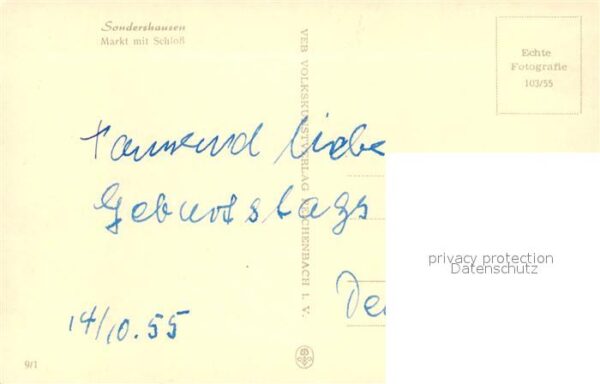 Sondershausen
Markt mit Schloß
Echte
Fotografie
103/55
VEB VOLKSKUNSTVERLAG REICHENBACH I. V.
tausend liebe
Geburtstags
14/10.55
9/1
privacy protection
Datenschutz